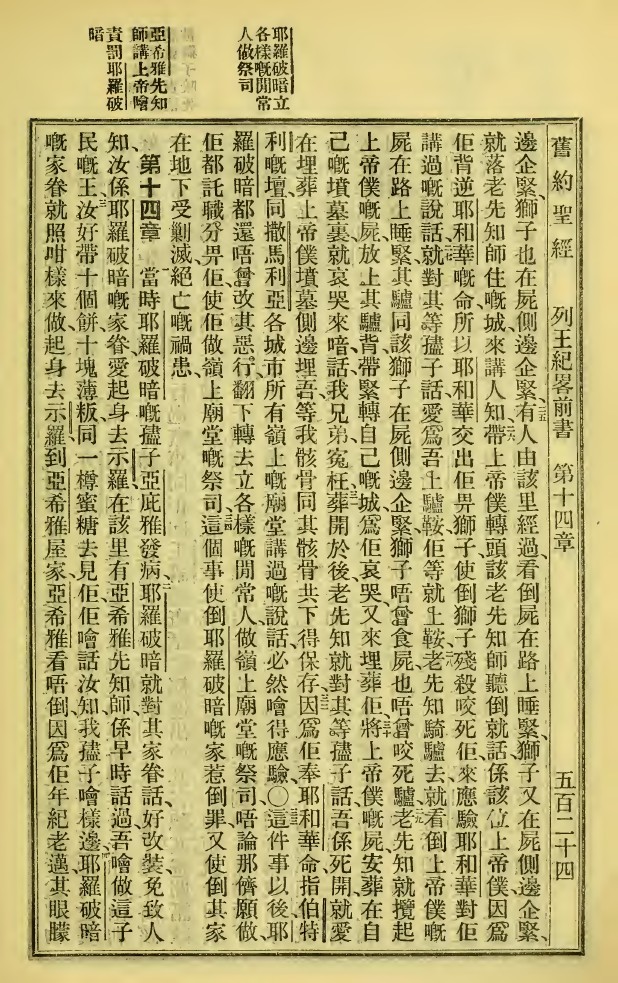 舊約聖經 列王紀畧前書 第十四章 五百二十四
耶羅破暗立
各樣嘅閒常
人做祭司
亞希雅先知
師講上帝噲
責罰耶羅破
暗
邊企緊、獅子也在屍側邊企緊、二五有人由該里經過、看倒屍在路上睡緊、獅子又在屍側邊企緊、
就落老先知師住嘅城來講人知、二六帶上帝僕轉頭該老先知師聽倒就話、係該位上帝僕因爲
佢背逆耶和華嘅命、所以耶和華交出佢畀獅子、使倒獅子殘殺咬死佢、來應驗耶和華對佢
講過嘅說話、就對其等孻子話、愛爲吾上驢鞍、佢等就上鞍、老先知騎驢去、就看倒上帝僕嘅
屍在路上睡緊、其驢同該獅子在屍側邊企緊、獅子唔曾食屍、也唔曾咬死驢、二九老先知就攬起
上帝僕嘅屍、放上其驢背帶緊轉自己嘅城、爲佢哀哭、又來埋葬佢、三十將上帝僕嘅屍、安葬在自
己嘅墳墓裏、就哀哭來暗話、我兄弟寃枉、葬開於後、老先知就對其等孻子話、吾係死開、就愛
在埋葬上帝僕墳墓側邊埋吾、等我骸骨同其骸骨共下得保存、三二因爲佢奉耶和華命、指伯特
利嘅壇、同撒馬利亞各城市所有嶺上嘅廟堂講過嘅說話、必然噲得應驗、〇三三這件事以後、耶
羅破暗都還唔曾改其惡行、翻下轉去立各樣嘅閒常人、做嶺上廟堂嘅祭司、唔論那儕願做、
佢都託職分畀佢、使佢做嶺上廟堂嘅祭司、三四這個事使倒耶羅破暗嘅家惹倒罪、又使倒其家
在地下受剿滅絕亡嘅禍患、
第十四章 一當時耶羅破暗嘅孻子亞庇雅發病、二耶羅破暗就對其家眷話、好改裝、免致人
知汝係耶羅破暗嘅家眷、愛起身去示羅、在該里有亞希雅先知師、係早時話過吾噲做這子
民嘅王、三汝好帶十個餅、十塊薄粄、同一樽蜜糖去見佢、佢噲話汝知、我孻子噲樣邊、四耶羅破暗
嘅家眷就照咁樣來做、起身去示羅、到亞希雅屋家、亞希雅看唔倒、因爲佢年紀老邁、其眼矇